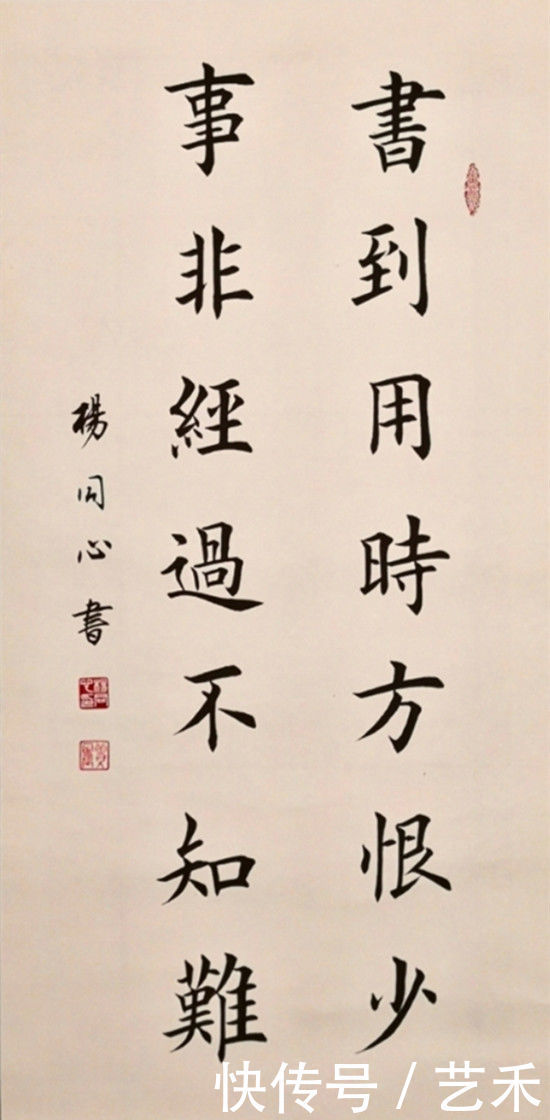 書到用時方恨少
事非經過不知難
楊同心書
快传号 / 艺禾